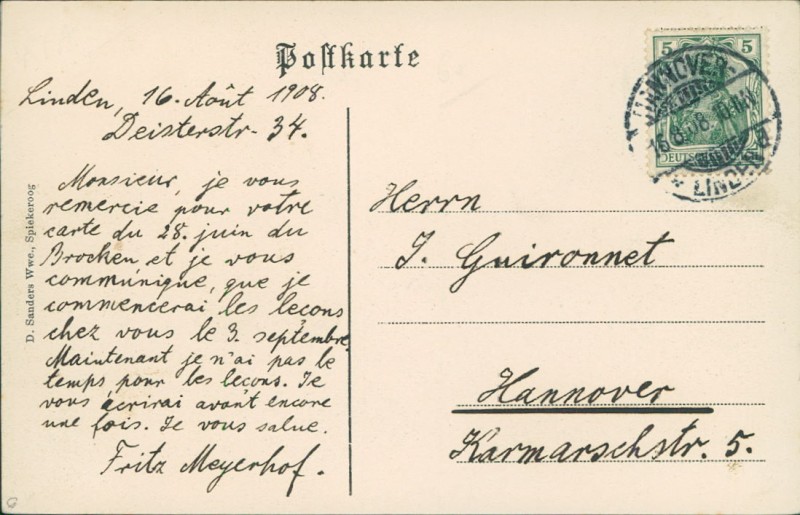 Postkarte
Linden, 16. Août 1908.
Deisterstr. 34.
Monsieur, je vous
remercie pour votre
carte du 28. juin du
Brocken et je vous
communique, que je
commencerai les leçons
chez vous le 3. septembre.
Maintenant je n'ai pas le
temps pour les leçons. Je
vous écrirai avant encore
une fois. Je vous salue.
Fritz Meyerhof.
D. Sanders Wwe., Spiekeroog
5 5
HANNOVER
* LINDEN
Herrn
J. Guironnet
Hannover
Karmarschstr. 5.